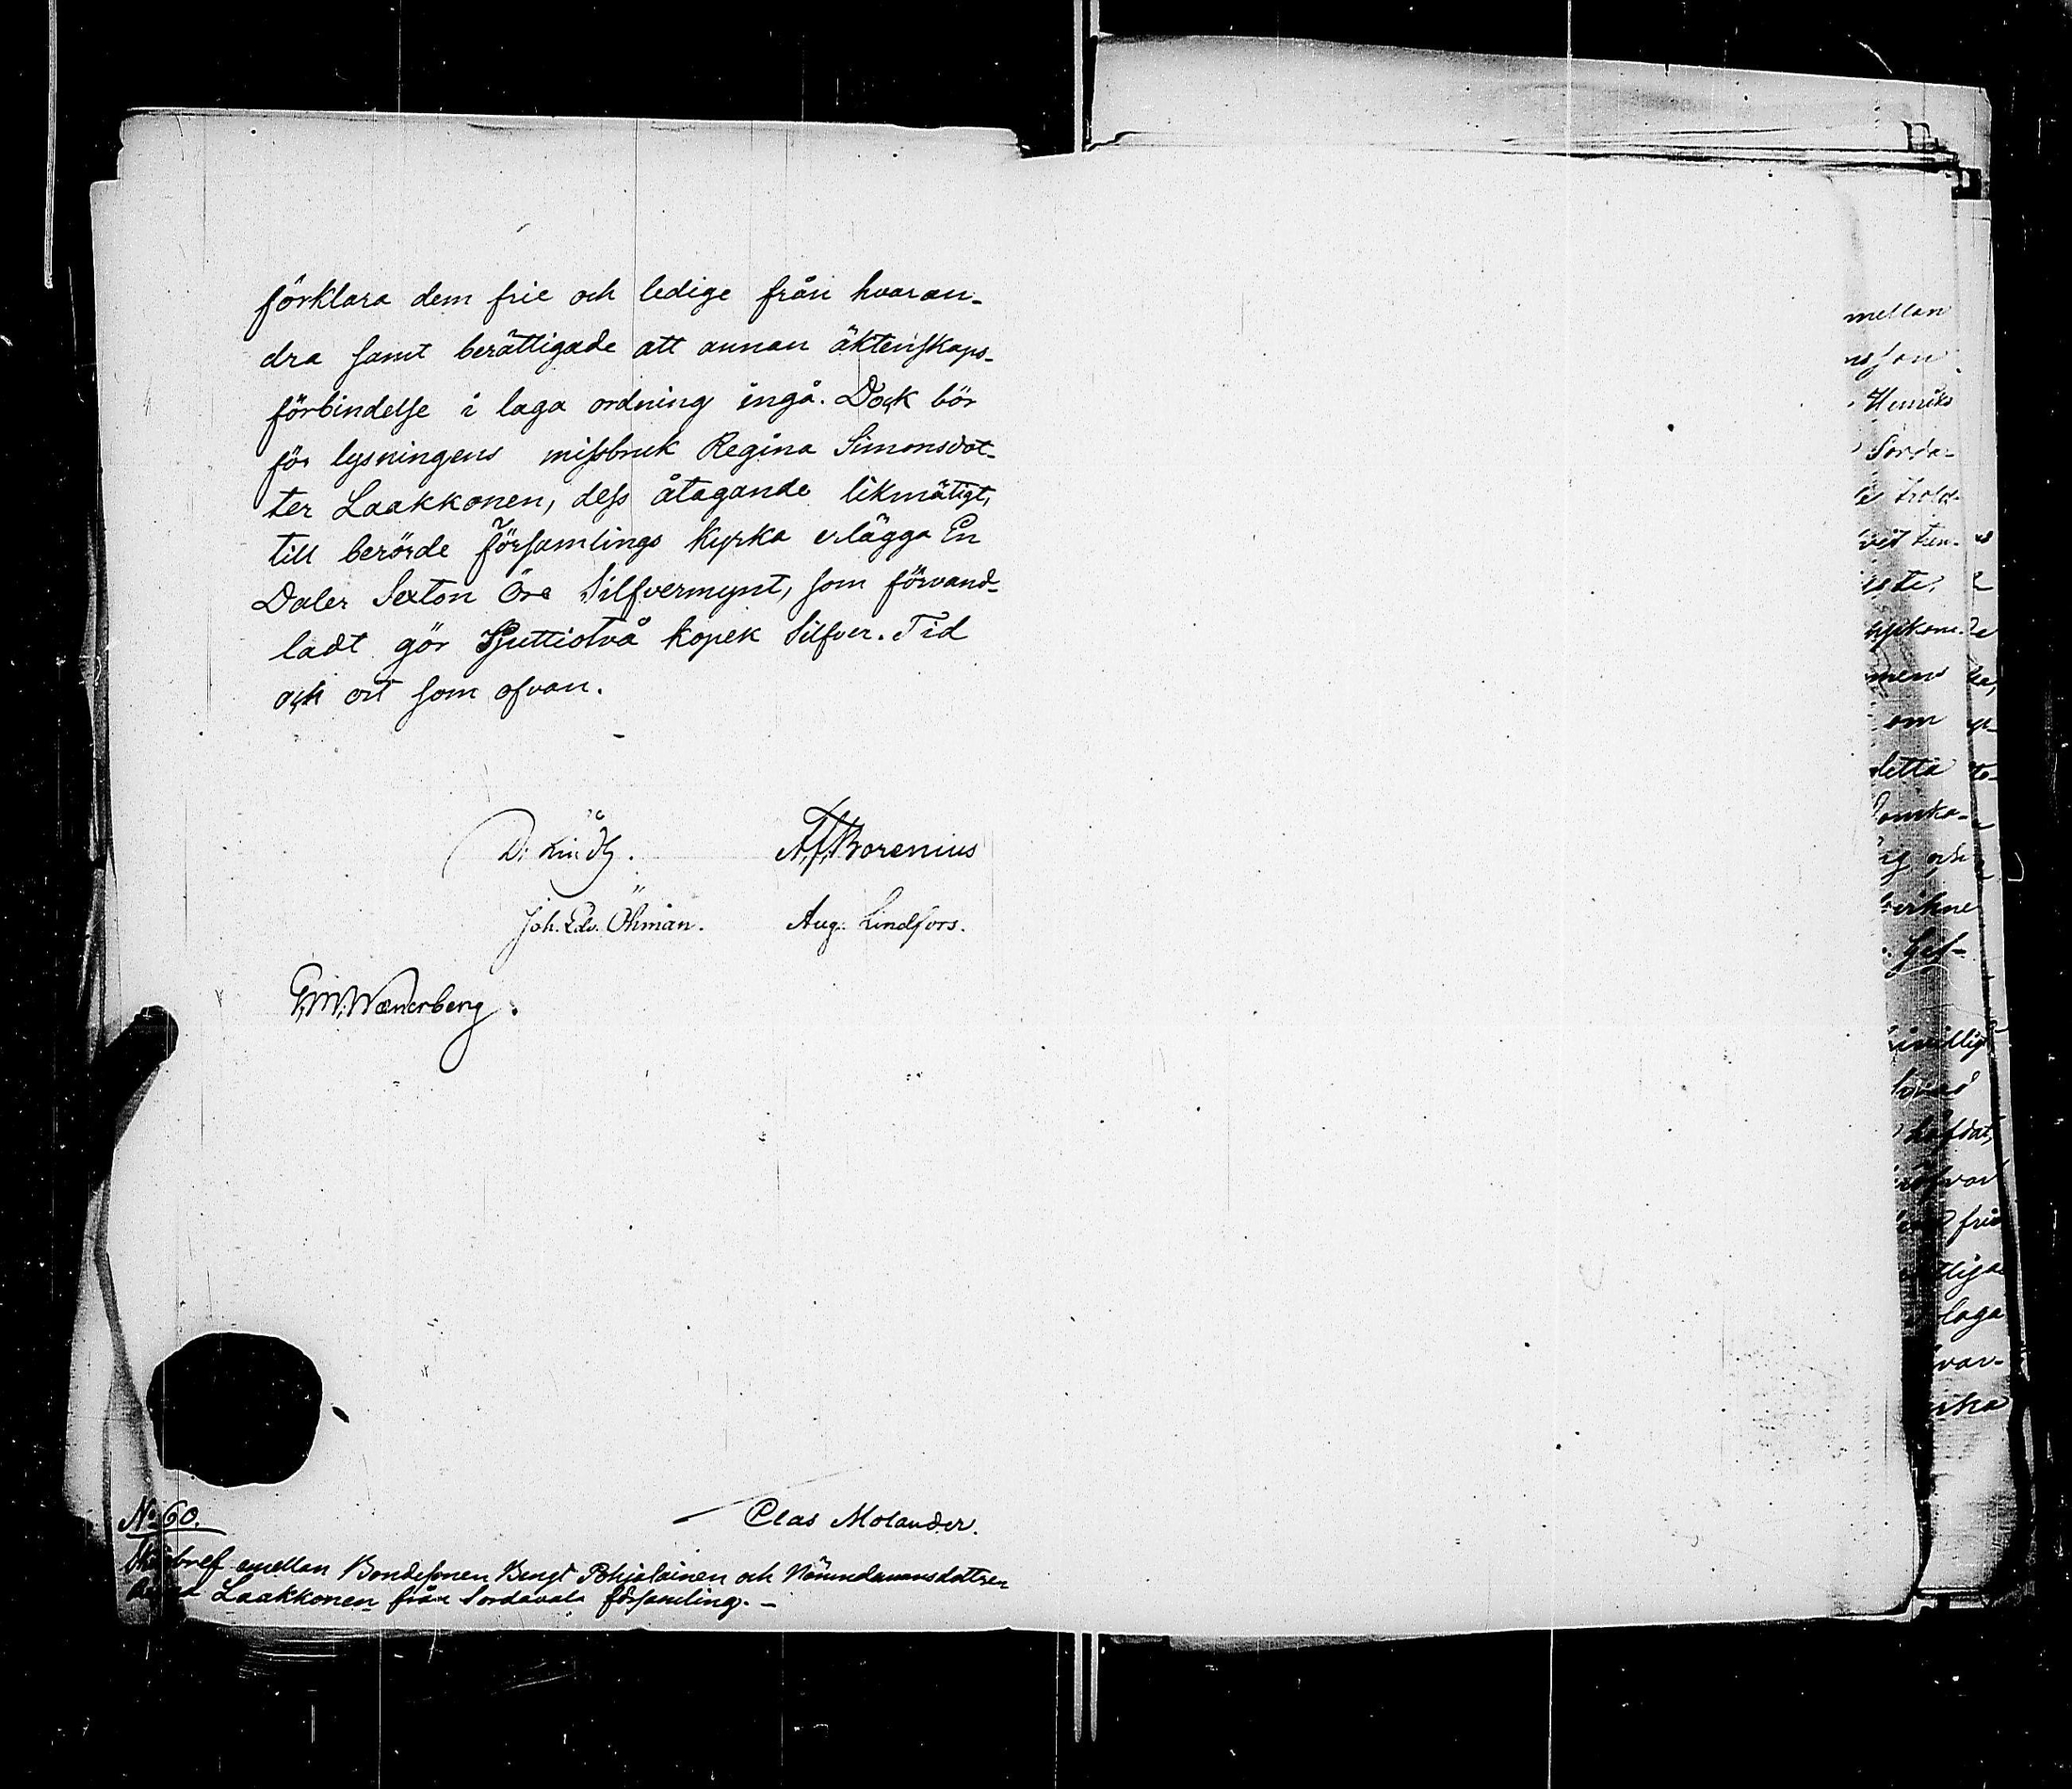 förklara dem frie och ledige från hvaran-
dra samt berättigade att annan äktenskaps-
förbindelse i laga ordning ingå. Dock bör
för lysningens missbruk Regina Simonsdot-
ter Laakkonen, dess åtagande likmätigt,
till berörde Församlings Kyrka erlägga En
Daler Sexton Öre Silfvermynt, som förvand-
ladt gör Sjuttiotvå kopek Silfver. Tid
och ort som ofvan.
A. F. Borenius
Joh. Edv. Öhman. Aug. Lindfors.
Wænerberg.
Clas Molander.
No 60.
emellan Bondesonen Bengt Pohjalainen och Nämndemansdottren
Laakkonen från Sordavala församling.-
mellan
Henriks
Sorda-
om
detta
och
laga